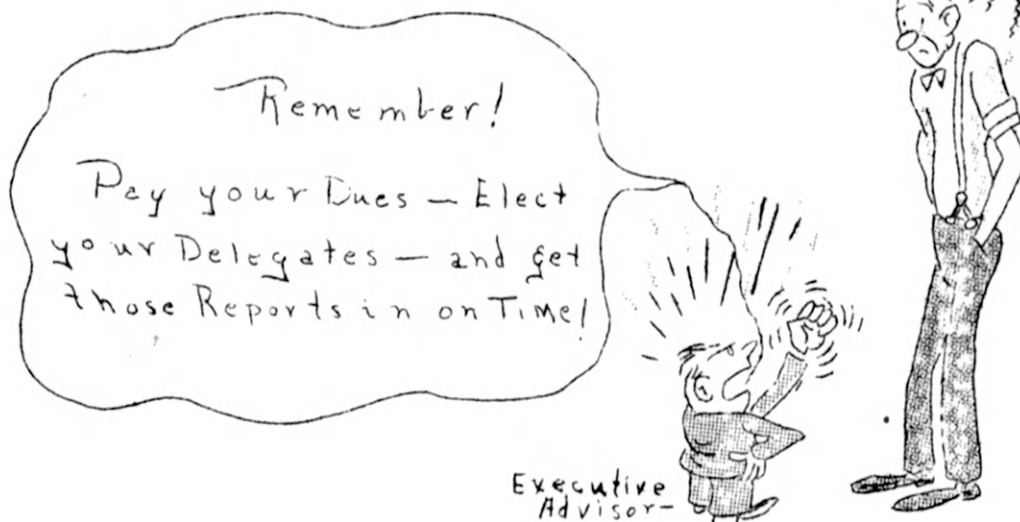 Remember!
Pay your Dues — Elect
your Delegates — and get
those Reports in on Time!
Executive
Advisor—